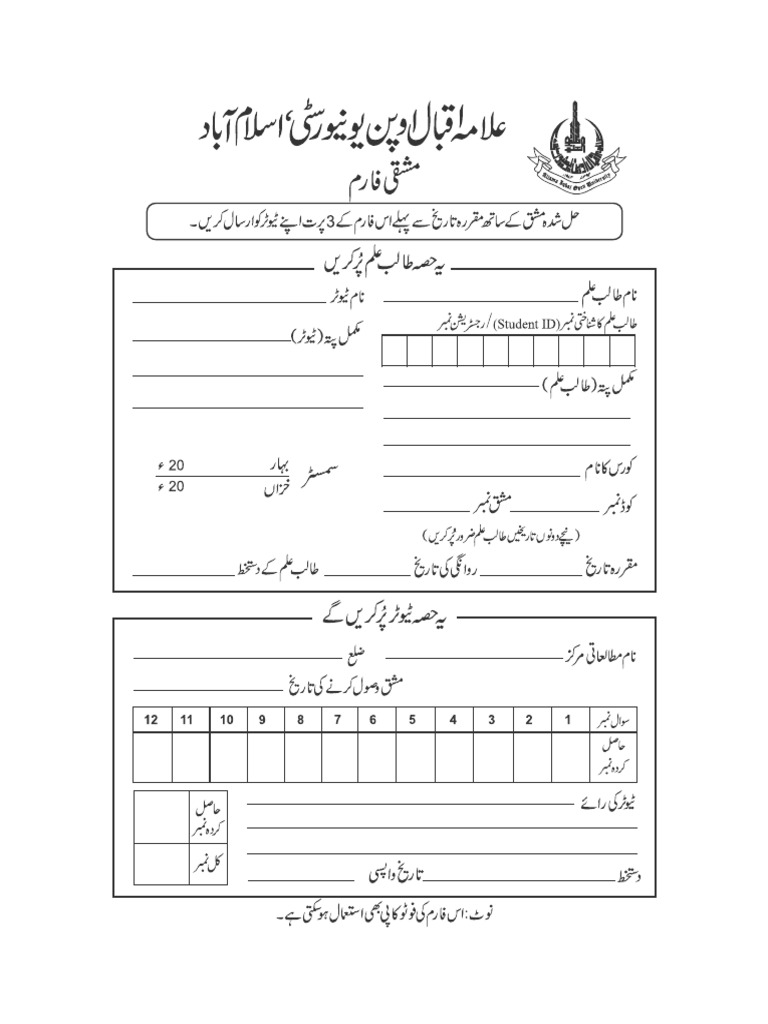 علامہ اقبال اوپن یونیورسٹی، اسلام آباد
Allama Iqbal Open University
مشقی فارم
حل شدہ مشق کے ساتھ مقررہ تاریخ سے پہلے اس فارم کے 3 پرت اپنے ٹیوٹر کو ارسال کریں۔
یہ حصہ طالب علم پُر کریں
نام طالب علم ____ نام ٹیوٹر ____
طالب علم کا شناختی نمبر (Student ID) / رجسٹریشن نمبر
مکمل پتہ (ٹیوٹر) ____
مکمل پتہ (طالب علم) ____
کورس کا نام ____
سمسٹر بہار 20 ء
خزاں 20 ء
کوڈ نمبر ____ مشق نمبر ____
(نیچے دونوں تاریخیں طالب علم ضرور پُر کریں)
مقررہ تاریخ ____ روانگی کی تاریخ ____ طالب علم کے دستخط ____
یہ حصہ ٹیوٹر پُر کریں گے
نام مطالعاتی مرکز ____ ضلع ____
مشق وصول کرنے کی تاریخ ____
سوال نمبر 1 2 3 4 5 6 7 8 9 10 11 12
حاصل کردہ نمبر
ٹیوٹر کی رائے ____
حاصل کردہ نمبر
کل نمبر
دستخط ____ تاریخ واپسی ____
نوٹ: اس فارم کی فوٹو کاپی بھی استعمال ہو سکتی ہے۔